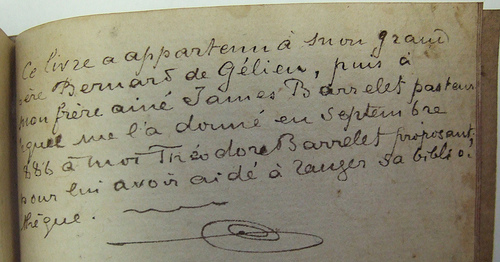 Ce livre a appartenu à mon grand
père Bernard de Gélieu, puis à
mon frère ainé James Barrelet pasteur
lequel me l'a donné en Septembre
1886 à moi Théodore Barrelet proposant,
pour lui avoir aidé à ranger sa biblio-
thèque.